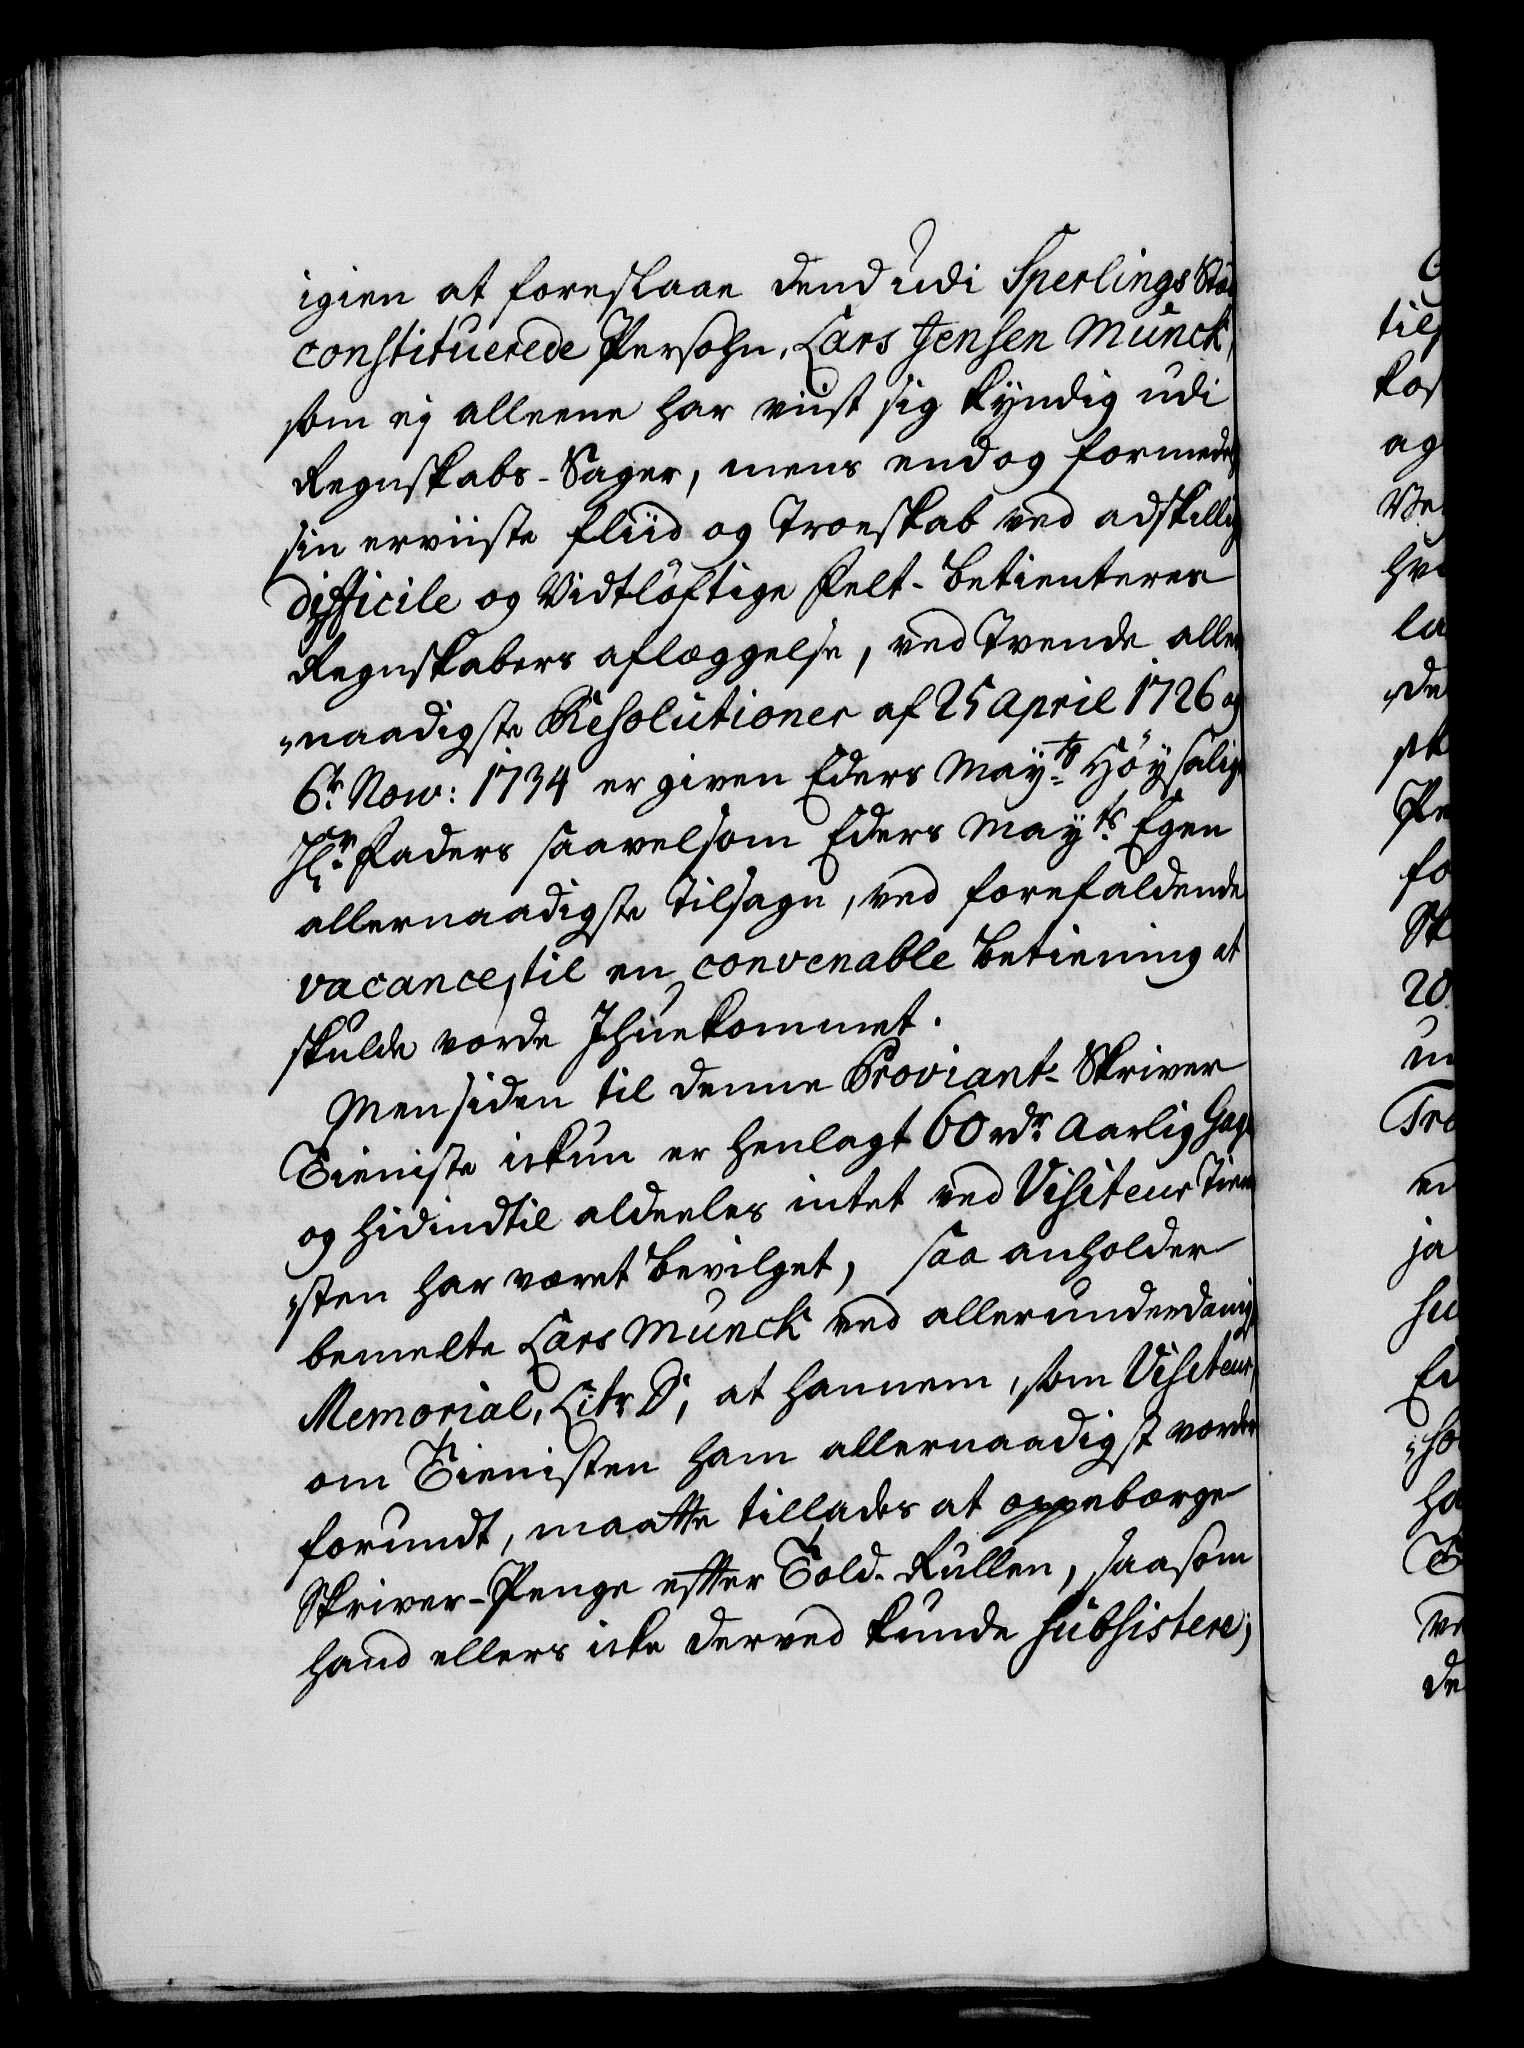 igien at foreslaae dend udi Sperlings Stæd
constituerede Persohn, Lars Jensen Munck,
som ej alleene har viist sig kyndig udi
Regnskabs-Sager, mens endog formedelst
sin erviiste fliid og Troeskab ved adskillig
difficile og Vidtløftige Felt-betienteres
Regnskabers aflæggelse, ved Tvende aller
„naadigste Resolutioner af 25 April 1726 og
6te Now: 1734 er given Eders Mayts Høysalig
Hr Faders saavelsom Eders Mayts Egen
allernaadigste Tilsagn, ved forefaldende
vacance, til en convenable betiening at
skulde vorde Ihuekommet.
Men siden til denne Proviant-Skriver
Tieniste ickun er henlagt 60 rdr Aarlig Gage
og hidindtil aldeeles intet ved Visiteur Tieni
„sten har været bevilget, saa anholder
bemelte Lars Munck ved allerunderdanigst
Memorial, Litr D, at hannem, som Visiteur,
om Tienisten ham allernaadigst vorder
forundt, maatte tillades at oppebærge
Skriver-Penge efter Told-Rullen, saasom
hand ellers icke derved kunde subsistere;
til
ag
la
de
fo
20
ja
de